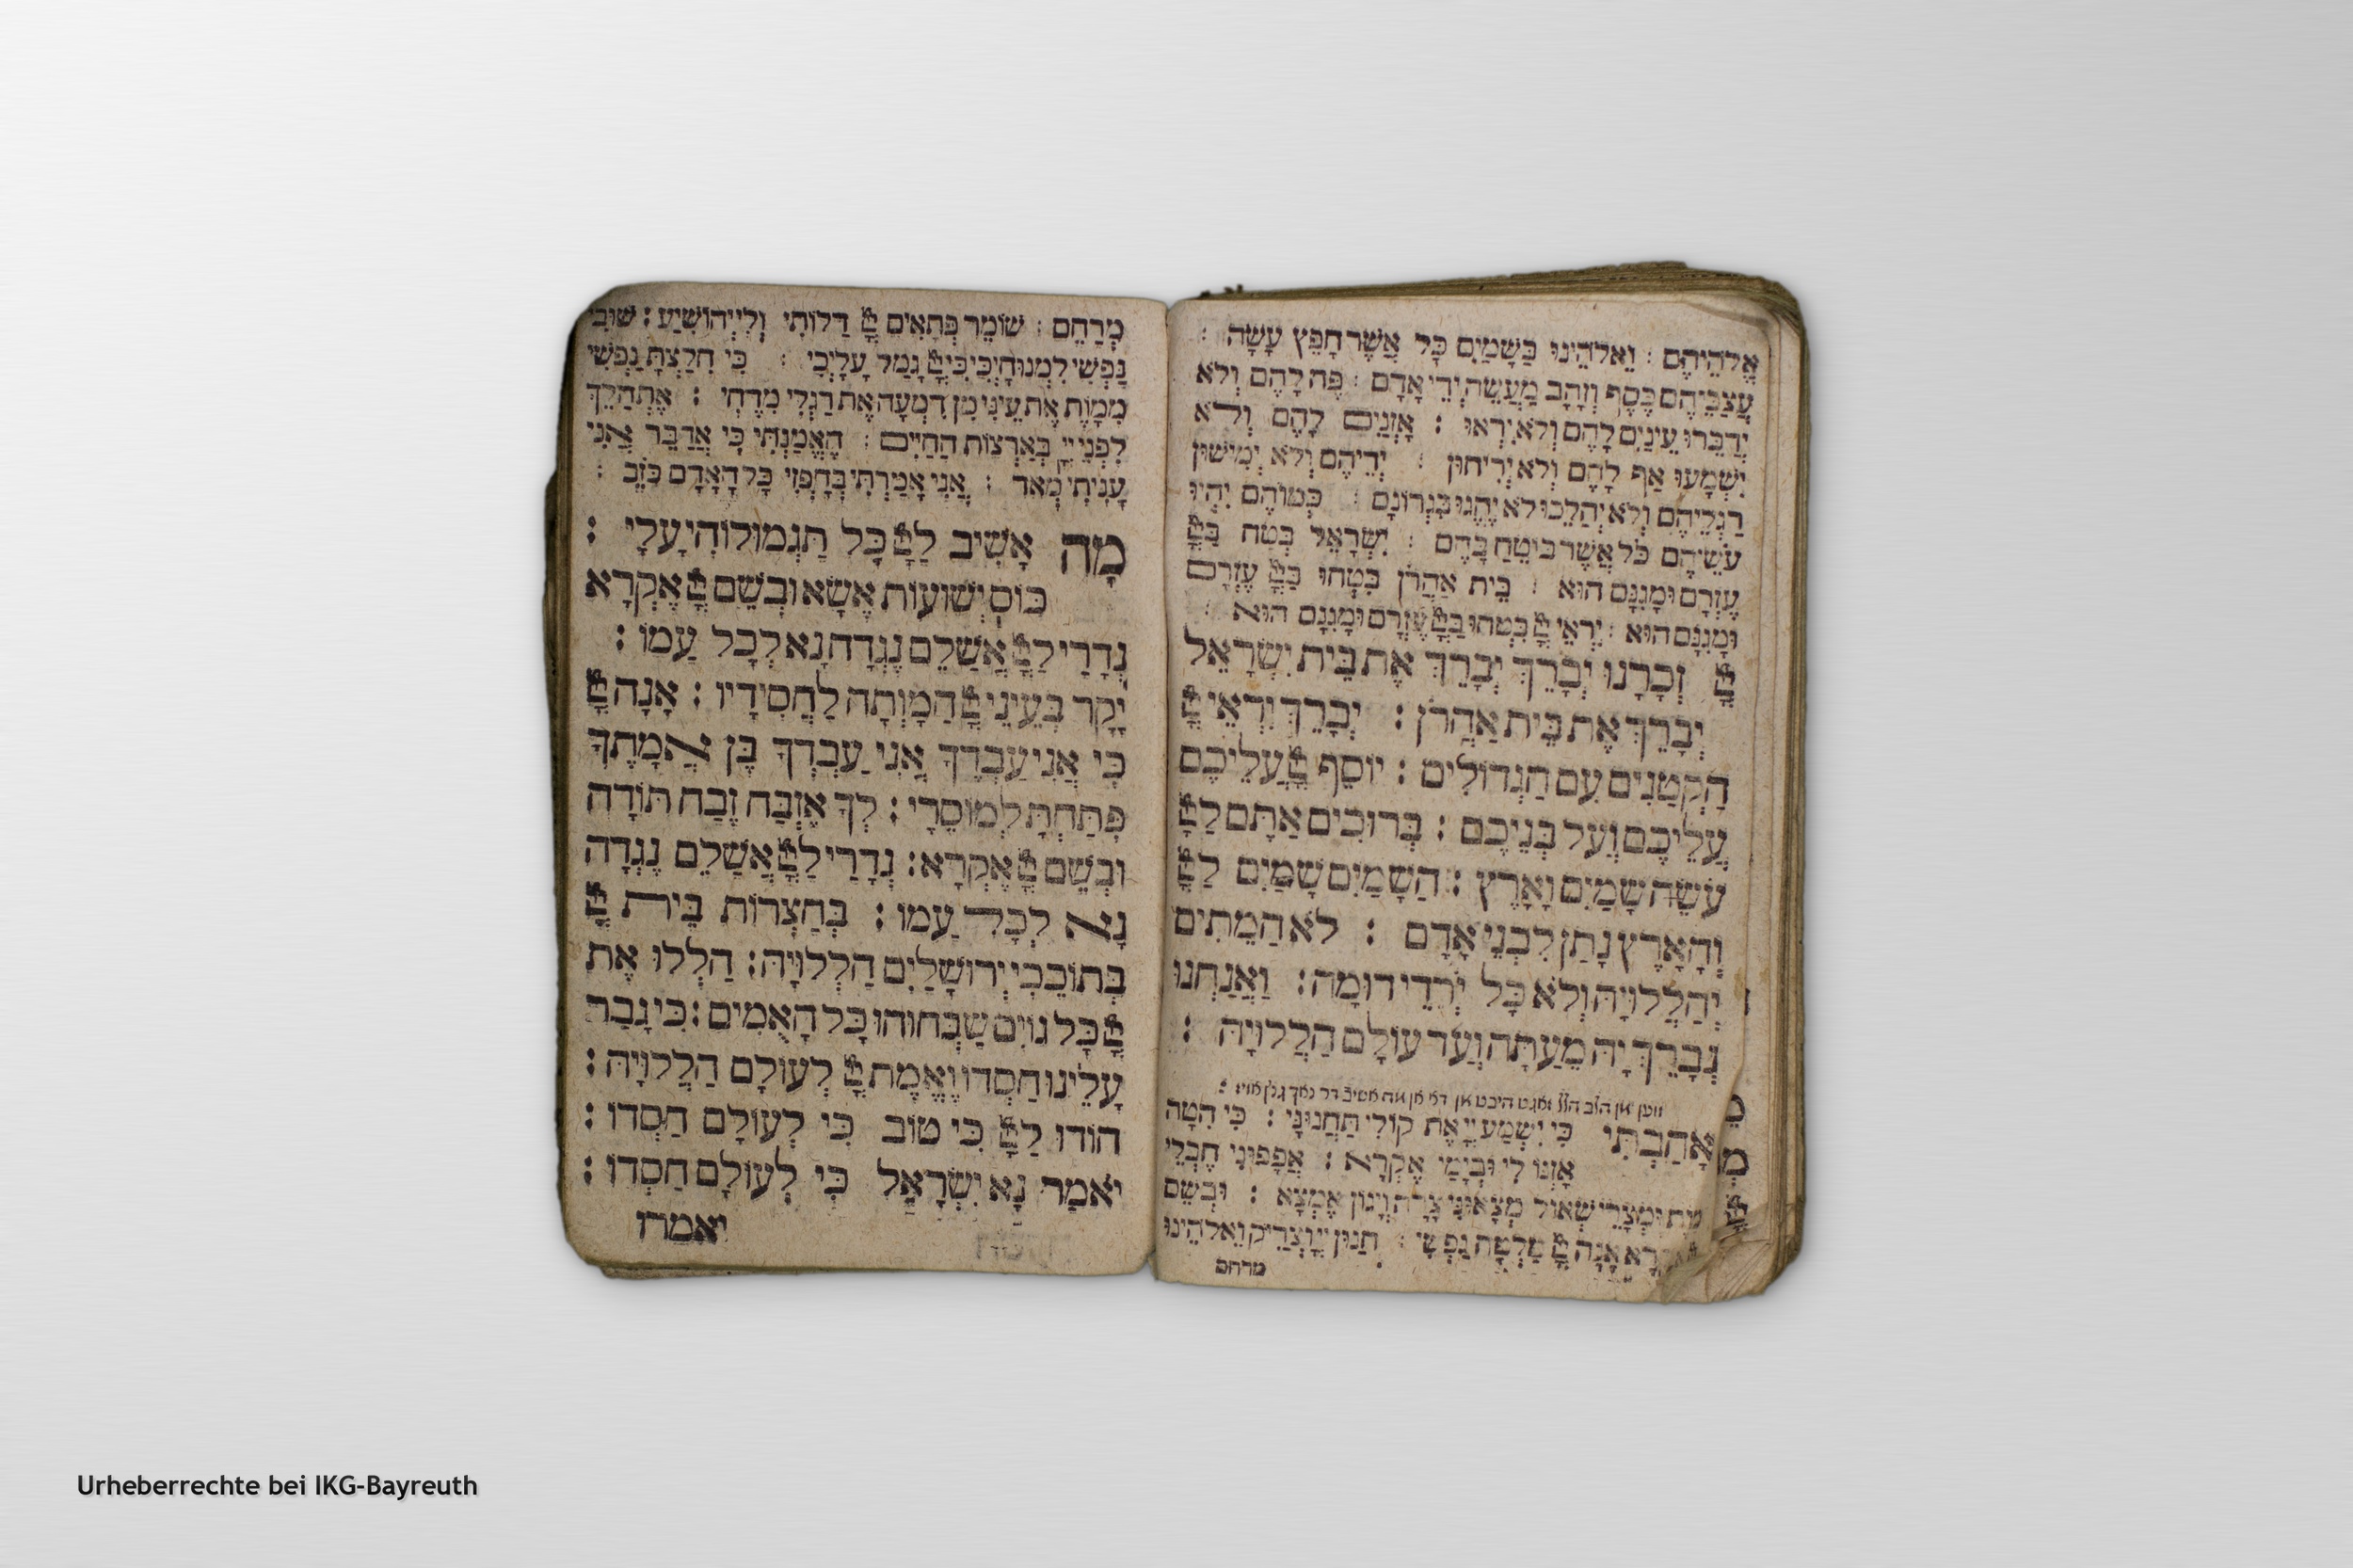 אֱלֹהֵיהֶם : וֵאלֹהֵינוּ בַּשָּׁמַיִם כָּל אֲשֶׁר חָפֵץ עָשָׂה :
עֲצַבֵּיהֶם כֶּסֶף וְזָהָב מַעֲשֵׂה יְדֵי אָדָם : פֶּה לָהֶם וְלֹא
יְדַבֵּרוּ עֵינַיִם לָהֶם וְלֹא יִרְאוּ : אָזְנַיִם לָהֶם וְלֹא
יִשְׁמָעוּ אַף לָהֶם וְלֹא יְרִיחוּן : יְדֵיהֶם וְלֹא יְמִישׁוּן
רַגְלֵיהֶם וְלֹא יְהַלֵּכוּ לֹא יֶהְגּוּ בִּגְרוֹנָם : כְּמוֹהֶם יִהְיוּ
עֹשֵׂיהֶם כֹּל אֲשֶׁר בּוֹטֵחַ בָּהֶם : יִשְׂרָאֵל בְּטַח בַּ
עֶזְרָם וּמָגִנָּם הוּא : בֵּית אַהֲרֹן בִּטְחוּ בַּ עֶזְרָם
וּמָגִנָּם הוּא : יִרְאֵי בִּטְחוּ בַּ עֶזְרָם וּמָגִנָּם הוּא :
זְכָרָנוּ יְבָרֵךְ יְבָרֵךְ אֶת בֵּית יִשְׂרָאֵל
יְבָרֵךְ אֶת בֵּית אַהֲרֹן : יְבָרֵךְ יִרְאֵי
הַקְּטַנִּים עִם הַגְּדוֹלִים : יוֹסֵף עֲלֵיכֶם
עֲלֵיכֶם וְעַל בְּנֵיכֶם : בְּרוּכִים אַתֶּם לַ
עֹשֵׂה שָׁמַיִם וָאָרֶץ : הַשָּׁמַיִם שָׁמַיִם לַ
וְהָאָרֶץ נָתַן לִבְנֵי אָדָם : לֹא הַמֵּתִים
יְהַלְלוּיָהּ וְלֹא כָּל יֹרְדֵי דוּמָה : וַאֲנַחְנוּ
נְבָרֵךְ יָהּ מֵעַתָּה וְעַד עוֹלָם הַלְלוּיָהּ :
אָהַבְתִּי כִּי יִשְׁמַע יְיָ אֶת קוֹלִי תַּחֲנוּנָי : כִּי הִטָּה
אָזְנוֹ לִי וּבְיָמַי אֶקְרָא : אֲפָפוּנִי חֶבְלֵי
וּמְצָרֵי שְׁאוֹל מְצָאוּנִי צָרָה וְיָגוֹן אֶמְצָא : וּבְשֵׁם
אָנָּה מַלְּטָה נַפְשִׁי : חַנּוּן יְיָ וְצַדִּיק וֵאלֹהֵינוּ
מרחם
מְרַחֵם : שׁוֹמֵר פְּתָאִים דַּלּוֹתִי וְלִי יְהוֹשִׁיעַ : שׁוּבִי
נַפְשִׁי לִמְנוּחָיְכִי כִּי גָּמַל עָלָיְכִי : כִּי חִלַּצְתָּ נַפְשִׁי
מִמָּוֶת אֶת עֵינִי מִן דִּמְעָה אֶת רַגְלִי מִדֶּחִי : אֶתְהַלֵּךְ
לִפְנֵי יְיָ בְּאַרְצוֹת הַחַיִּים : הֶאֱמַנְתִּי כִּי אֲדַבֵּר אֲנִי
עָנִיתִי מְאֹד : אֲנִי אָמַרְתִּי בְחָפְזִי כָּל הָאָדָם כֹּזֵב :
מָה אָשִׁיב לַ כָּל תַּגְמוּלוֹהִי עָלָי :
כּוֹס יְשׁוּעוֹת אֶשָּׂא וּבְשֵׁם אֶקְרָא
נְדָרַי לַ אֲשַׁלֵּם נֶגְדָה נָּא לְכָל עַמּוֹ :
יָקָר בְּעֵינֵי הַמָּוְתָה לַחֲסִידָיו : אָנָּה
כִּי אֲנִי עַבְדֶּךָ אֲנִי עַבְדְּךָ בֶּן אֲמָתֶךָ
פִּתַּחְתָּ לְמוֹסֵרָי : לְךָ אֶזְבַּח זֶבַח תּוֹדָה
וּבְשֵׁם אֶקְרָא : נְדָרַי לַ אֲשַׁלֵּם נֶגְדָה
נָּא לְכָל עַמּוֹ : בְּחַצְרוֹת בֵּית
בְּתוֹכֵכִי יְרוּשָׁלַיִם הַלְלוּיָהּ : הַלְלוּ אֶת
כָּל גּוֹיִם שַׁבְּחוּהוּ כָּל הָאֻמִּים : כִּי גָבַר
עָלֵינוּ חַסְדּוֹ וֶאֱמֶת לְעוֹלָם הַלְלוּיָהּ :
הוֹדוּ לַ כִּי טוֹב כִּי לְעוֹלָם חַסְדּוֹ :
יֹאמַר נָא יִשְׂרָאֵל כִּי לְעוֹלָם חַסְדּוֹ :
יאמרו
Urheberrechte bei IKG-Bayreuth